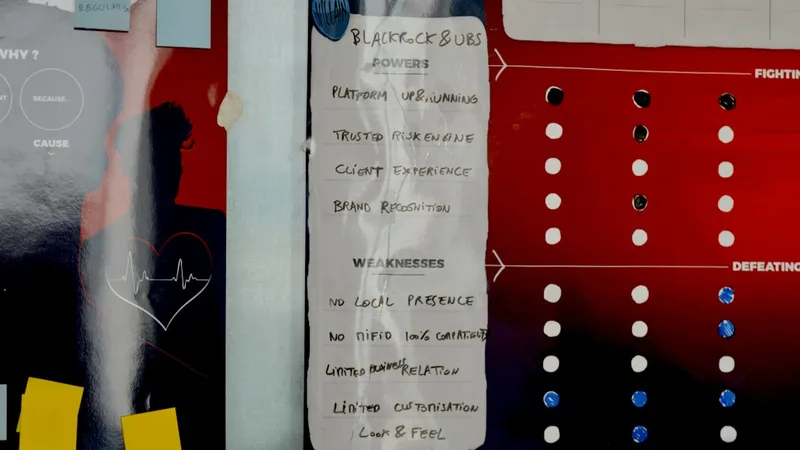 REGULATI
WHY ?
BECAUSE...
CAUSE
VILLAIN
BLACKROCK & UBS
POWERS
PLATFORM UP & RUNNING
TRUSTED RISK ENGINE
CLIENT EXPERIENCE
BRAND RECOGNITION
WEAKNESSES
NO LOCAL PRESENCE
NO MIFID 100% COMPATIBLE
LIMITED BUSINESS RELATION
LIMITED CUSTOMISATION
LOOK & FEEL
FIGHTIN
DEFEATING